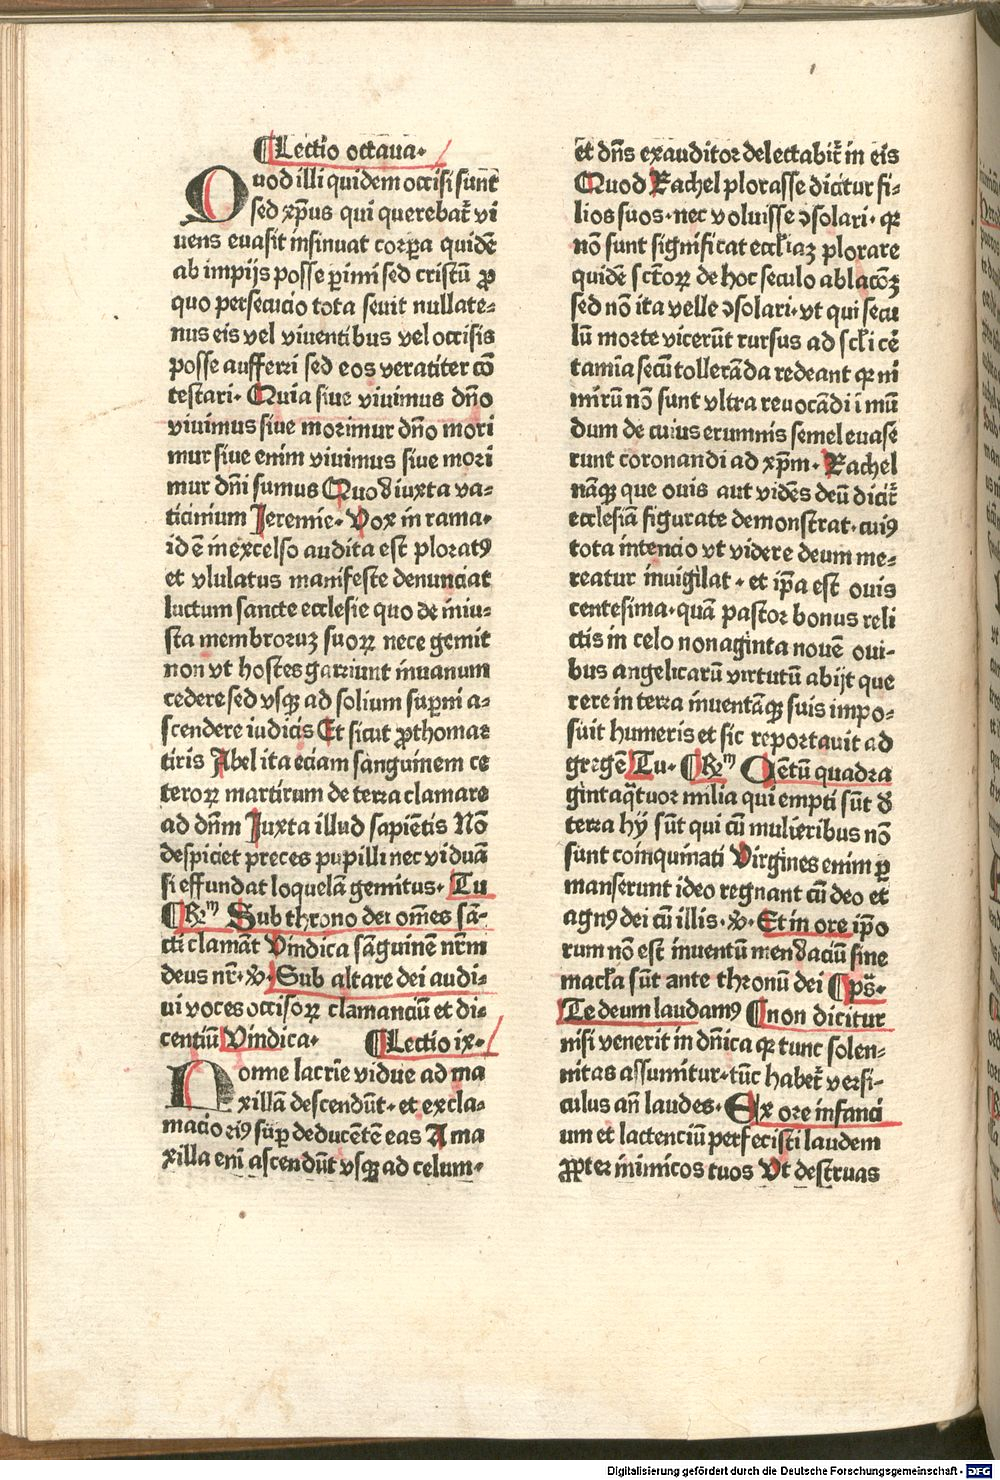 ¶Lectio octaua·
Quod illi quidem occisi sunt
sed xp̄us qui querebat᷑ vi
uens euasit insinuat corꝑa quidē
ab impijs posse ꝑimi sed cristū ꝓ
quo persecucio tota seuit nullate⸗
nus eis vel viuentibus vel occisis
posse aufferri sed eos veratiter cō
testari· Quia siue viuimus dn̄o
viuimus siue morimur dn̄o mori
mur siue enim viuimus siue mori
mur dn̄i sumus Quod iuxta va⸗
ticinium Jeremie· Vox in rama·
id ē in excelso audita est ploratꝯ
et vlulatus manifeste denunciat
luctum sancte ecclesie quo de iniu⸗
sta membroruꝫ suoꝝ nece gemit
non vt hostes garriunt inuanum
cedere sed vsqꝫ ad solium suꝑni a⸗
scendere iudicis Et sicut ꝓthomar
tiris Abel ita eciam sanguinem ce
teroꝝ martirum de terra clamare
ad dn̄m Juxta illud sapiētis Nō
despiciet preces pupilli nec viduā
si effundat loquelā gemitus· Tu
¶Rm Sub throno dei om̄es sā⸗
cti clamāt Vindica sāguinē nr̄m
deus nr̄· ℣· Sub altare dei audi⸗
ui voces occisoꝝ clamanciū et di⸗
centiū Vindica· ¶Lectio ix·
Nonne lacrīe vidue ad ma
xillā descendūt· et excla⸗
macio eiꝯ suꝑ deducentē eas A ma
xilla eni ascendūt vsqꝫ ad celum·
et dn̄s exauditor delectabit᷑ in eis
Quod Rachel plorasse dicitur fi⸗
lios suos· nec voluisse ꝯsolari· qꝛ
nō sunt significat eccl̄iaꝫ plorare
quidē sct̄oꝝ de hoc seculo ablacōꝫ
sed nō ita velle ꝯsolari· vt qui secu
lū morte vicerūt rursus ad scl̄i cē
tamīa secū tollerāda redeant qꝛ ni
mirū nō sunt vltra reuocādi ī mū
dum de cuius erumnis semel euase
runt coronandi ad xp̄m· Rachel
nāqꝫ que ouis aut vidēs deū dicit᷑
ecclesiā figurate demonstrat· cuiꝯ
tota intencio vt videre deum me⸗
reatur inuigilat· et ip̄a est ouis
centesima· quā pastor bonus reli
ctis in celo nonaginta nouē oui⸗
bus angelicarū virtutū abijt que
rere in terra inuentāqꝫ suis impo⸗
suit humeris et sic reportauit ad
gregē Tu· ¶Rm Cētū quadra
ginta q̄tuor milia qui empti sūt d̄
terra hij sūt qui cū mulieribus nō
sunt coinquinati Virgines enim ꝑ
manserunt ideo regnant cū deo et
agnꝯ dei cū illis· ℣· Et in ore ip̄o
rum nō est inuentū mendaciū sine
macl̄a sūt ante thronū dei ¶ps̄·
Te deum laudamꝯ ¶non dicitur
nisi venerit in dn̄ica qꝛ tunc solen⸗
nitas assumitur· tūc habet᷑ versi⸗
culus an̄ laudes· Ex ore infanci
um et lactenciū perfecisti laudem
ꝓpter inimicos tuos Vt destruas
Digitalisierung gefördert durch die Deutsche Forschungsgemeinschaft - DFG